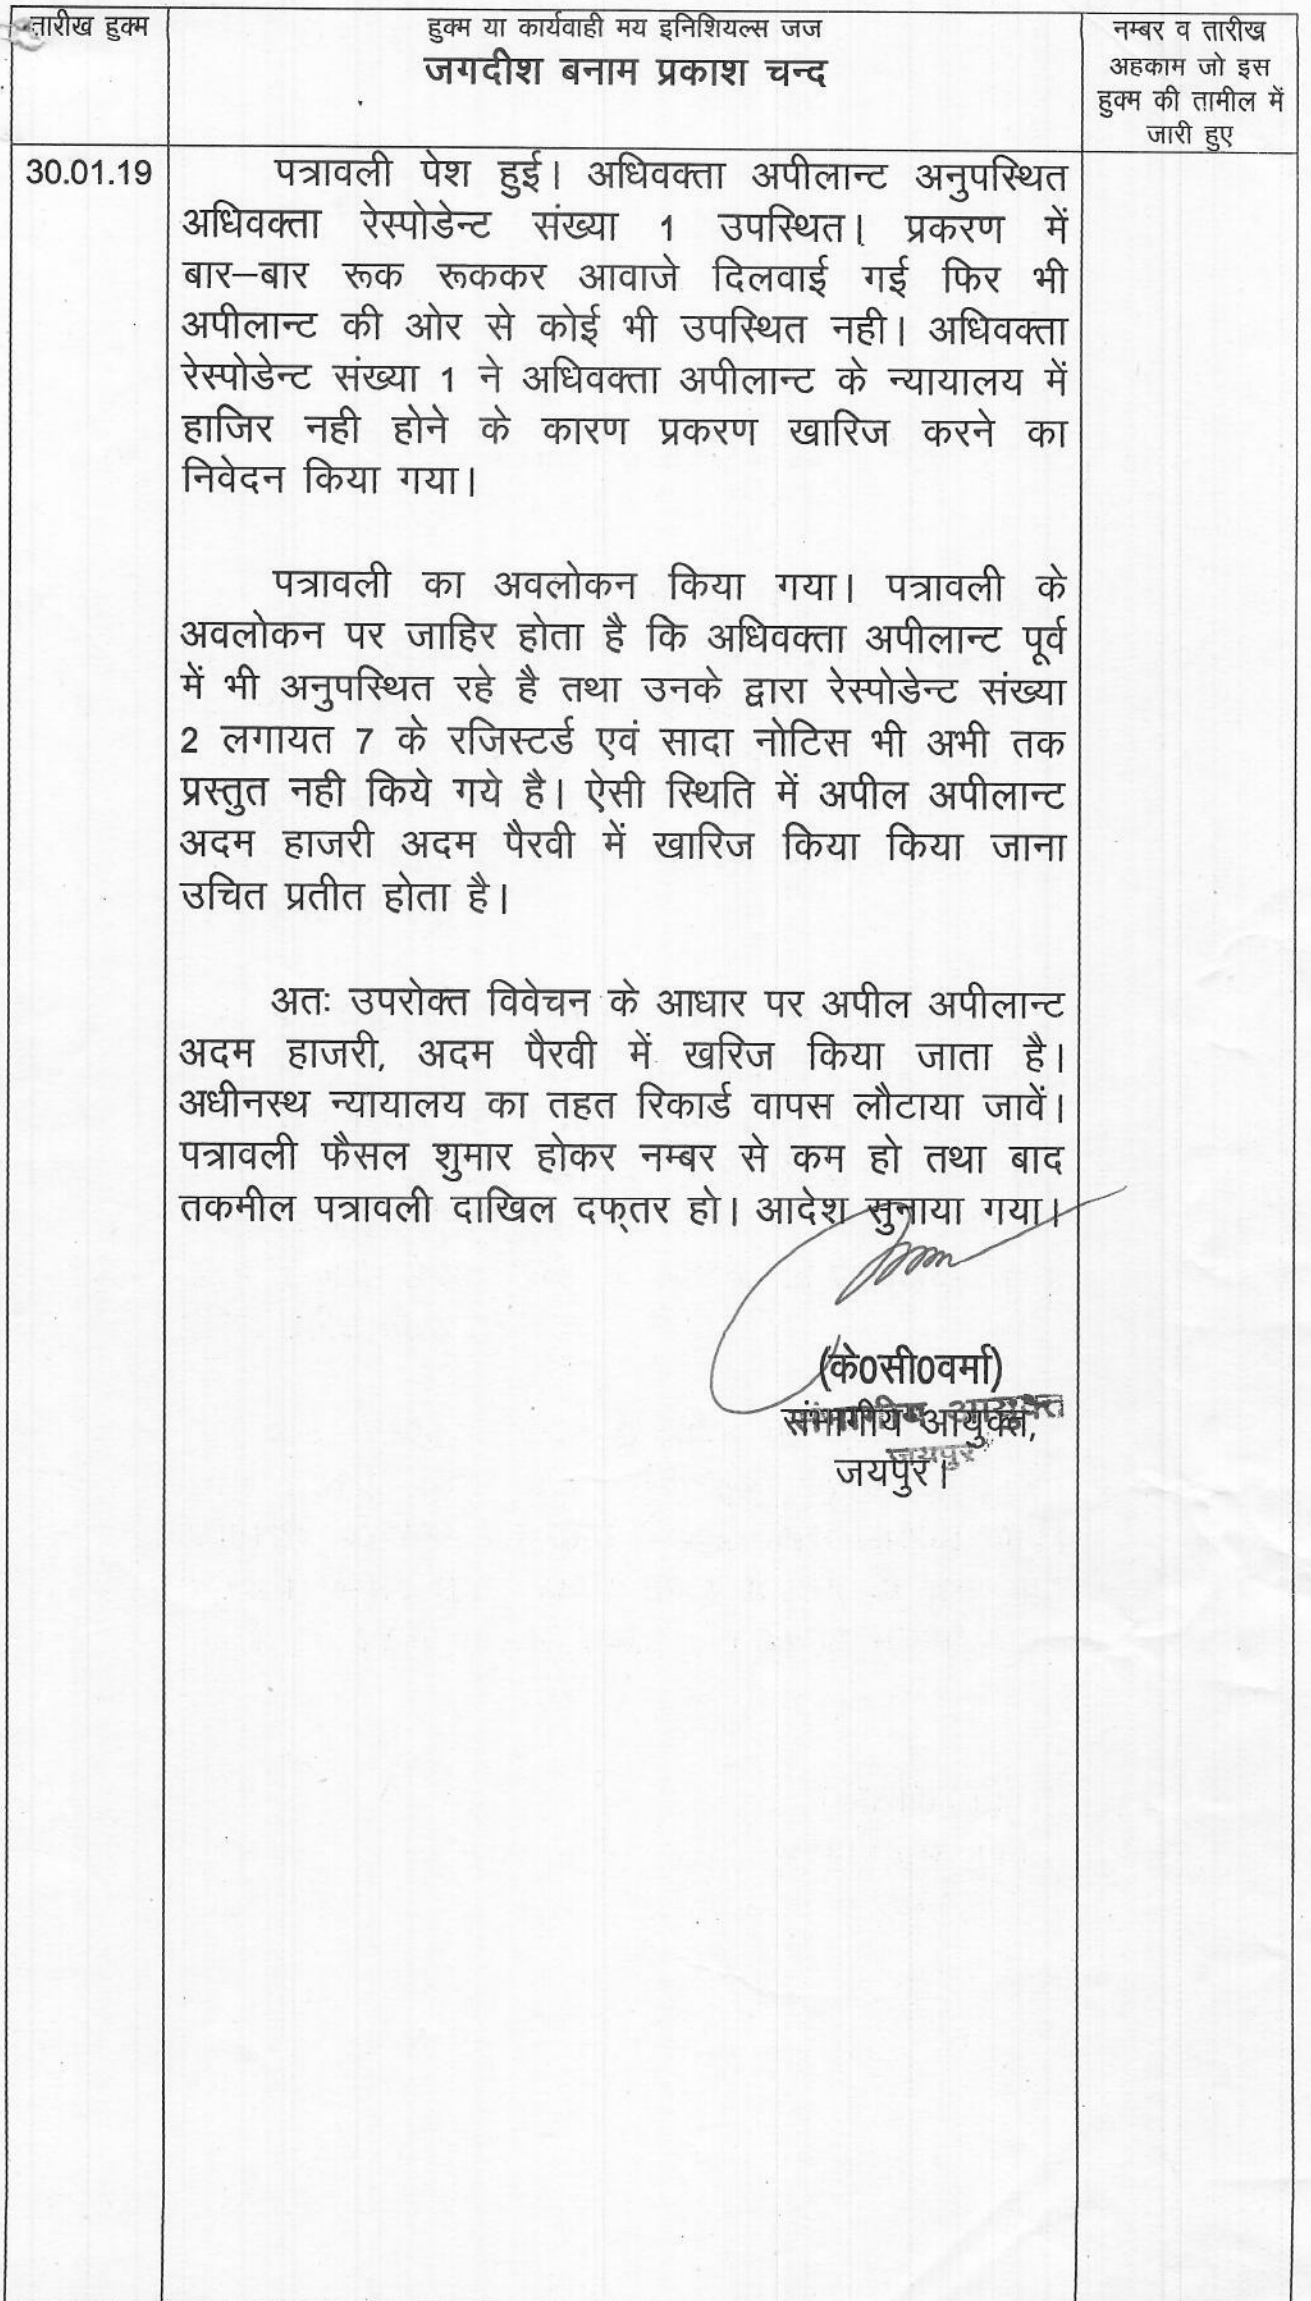 तारीख हुक्म
हुक्म या कार्यवाही मय इनिशियल्स जज
जगदीश बनाम प्रकाश चन्द
नम्बर व तारीख
अहकाम जो इस
हुक्म की तामील में
जारी हुए
30.01.19
पत्रावली पेश हुई। अधिवक्ता अपीलान्ट अनुपस्थित
अधिवक्ता रेस्पोडेन्ट संख्या 1 उपस्थित। प्रकरण में
बार–बार रूक रूककर आवाजे दिलवाई गई फिर भी
अपीलान्ट की ओर से कोई भी उपस्थित नही। अधिवक्ता
रेस्पोडेन्ट संख्या 1 ने अधिवक्ता अपीलान्ट के न्यायालय में
हाजिर नही होने के कारण प्रकरण खारिज करने का
निवेदन किया गया।
पत्रावली का अवलोकन किया गया। पत्रावली के
अवलोकन पर जाहिर होता है कि अधिवक्ता अपीलान्ट पूर्व
में भी अनुपस्थित रहे है तथा उनके द्वारा रेस्पोडेन्ट संख्या
2 लगायत 7 के रजिस्टर्ड एवं सादा नोटिस भी अभी तक
प्रस्तुत नही किये गये है। ऐसी स्थिति में अपील अपीलान्ट
अदम हाजरी अदम पैरवी में खारिज किया किया जाना
उचित प्रतीत होता है।
अतः उपरोक्त विवेचन के आधार पर अपील अपीलान्ट
अदम हाजरी, अदम पैरवी में खरिज किया जाता है।
अधीनस्थ न्यायालय का तहत रिकार्ड वापस लौटाया जावें।
पत्रावली फैसल शुमार होकर नम्बर से कम हो तथा बाद
तकमील पत्रावली दाखिल दफ्तर हो। आदेश सुनाया गया।
(के0सी0वर्मा)
संभागीय आयुक्त,
संभागीय आयुक्त
जयपुर
जयपुर।